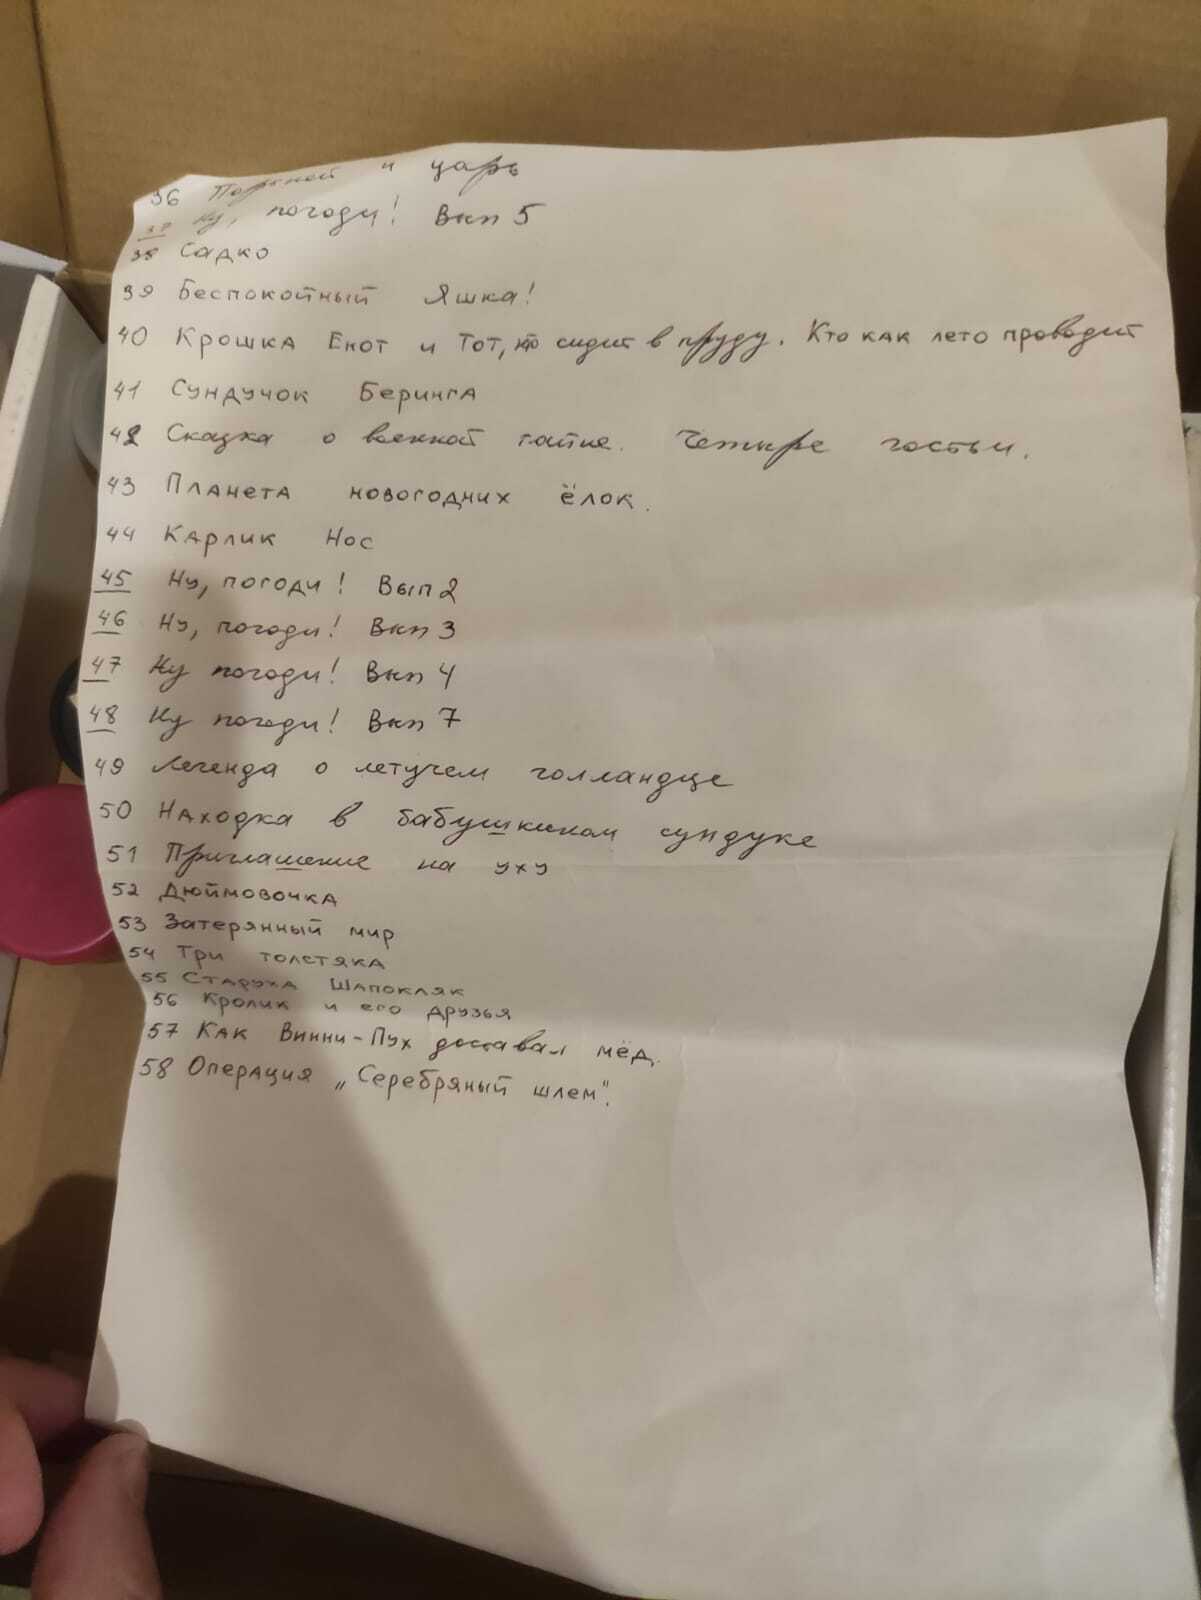 36 Портной и царь
37 Ну, погоди! Вып 5
38 Садко
39 Беспокойный Яшка!
40 Крошка Енот и Тот, кто сидит в пруду. Кто как лето проводит
41 Сундучок Беринга
42 Сказка о военной тайне. Четыре гостьи.
43 Планета новогодних ёлок.
44 Карлик Нос
45 Ну, погоди! Вып 2
46 Ну, погоди! Вып 3
47 Ну погоди! Вып 4
48 Ну погоди! Вып 7
49 Легенда о летучем голландце
50 Находка в бабушкином сундуке
51 Приглашение на уху
52 Дюймовочка
53 Затерянный мир
54 Три толстяка
55 Старуха Шапокляк
56 Кролик и его друзья
57 Как Винни-Пух доставал мёд.
58 Операция „Серебряный шлем".